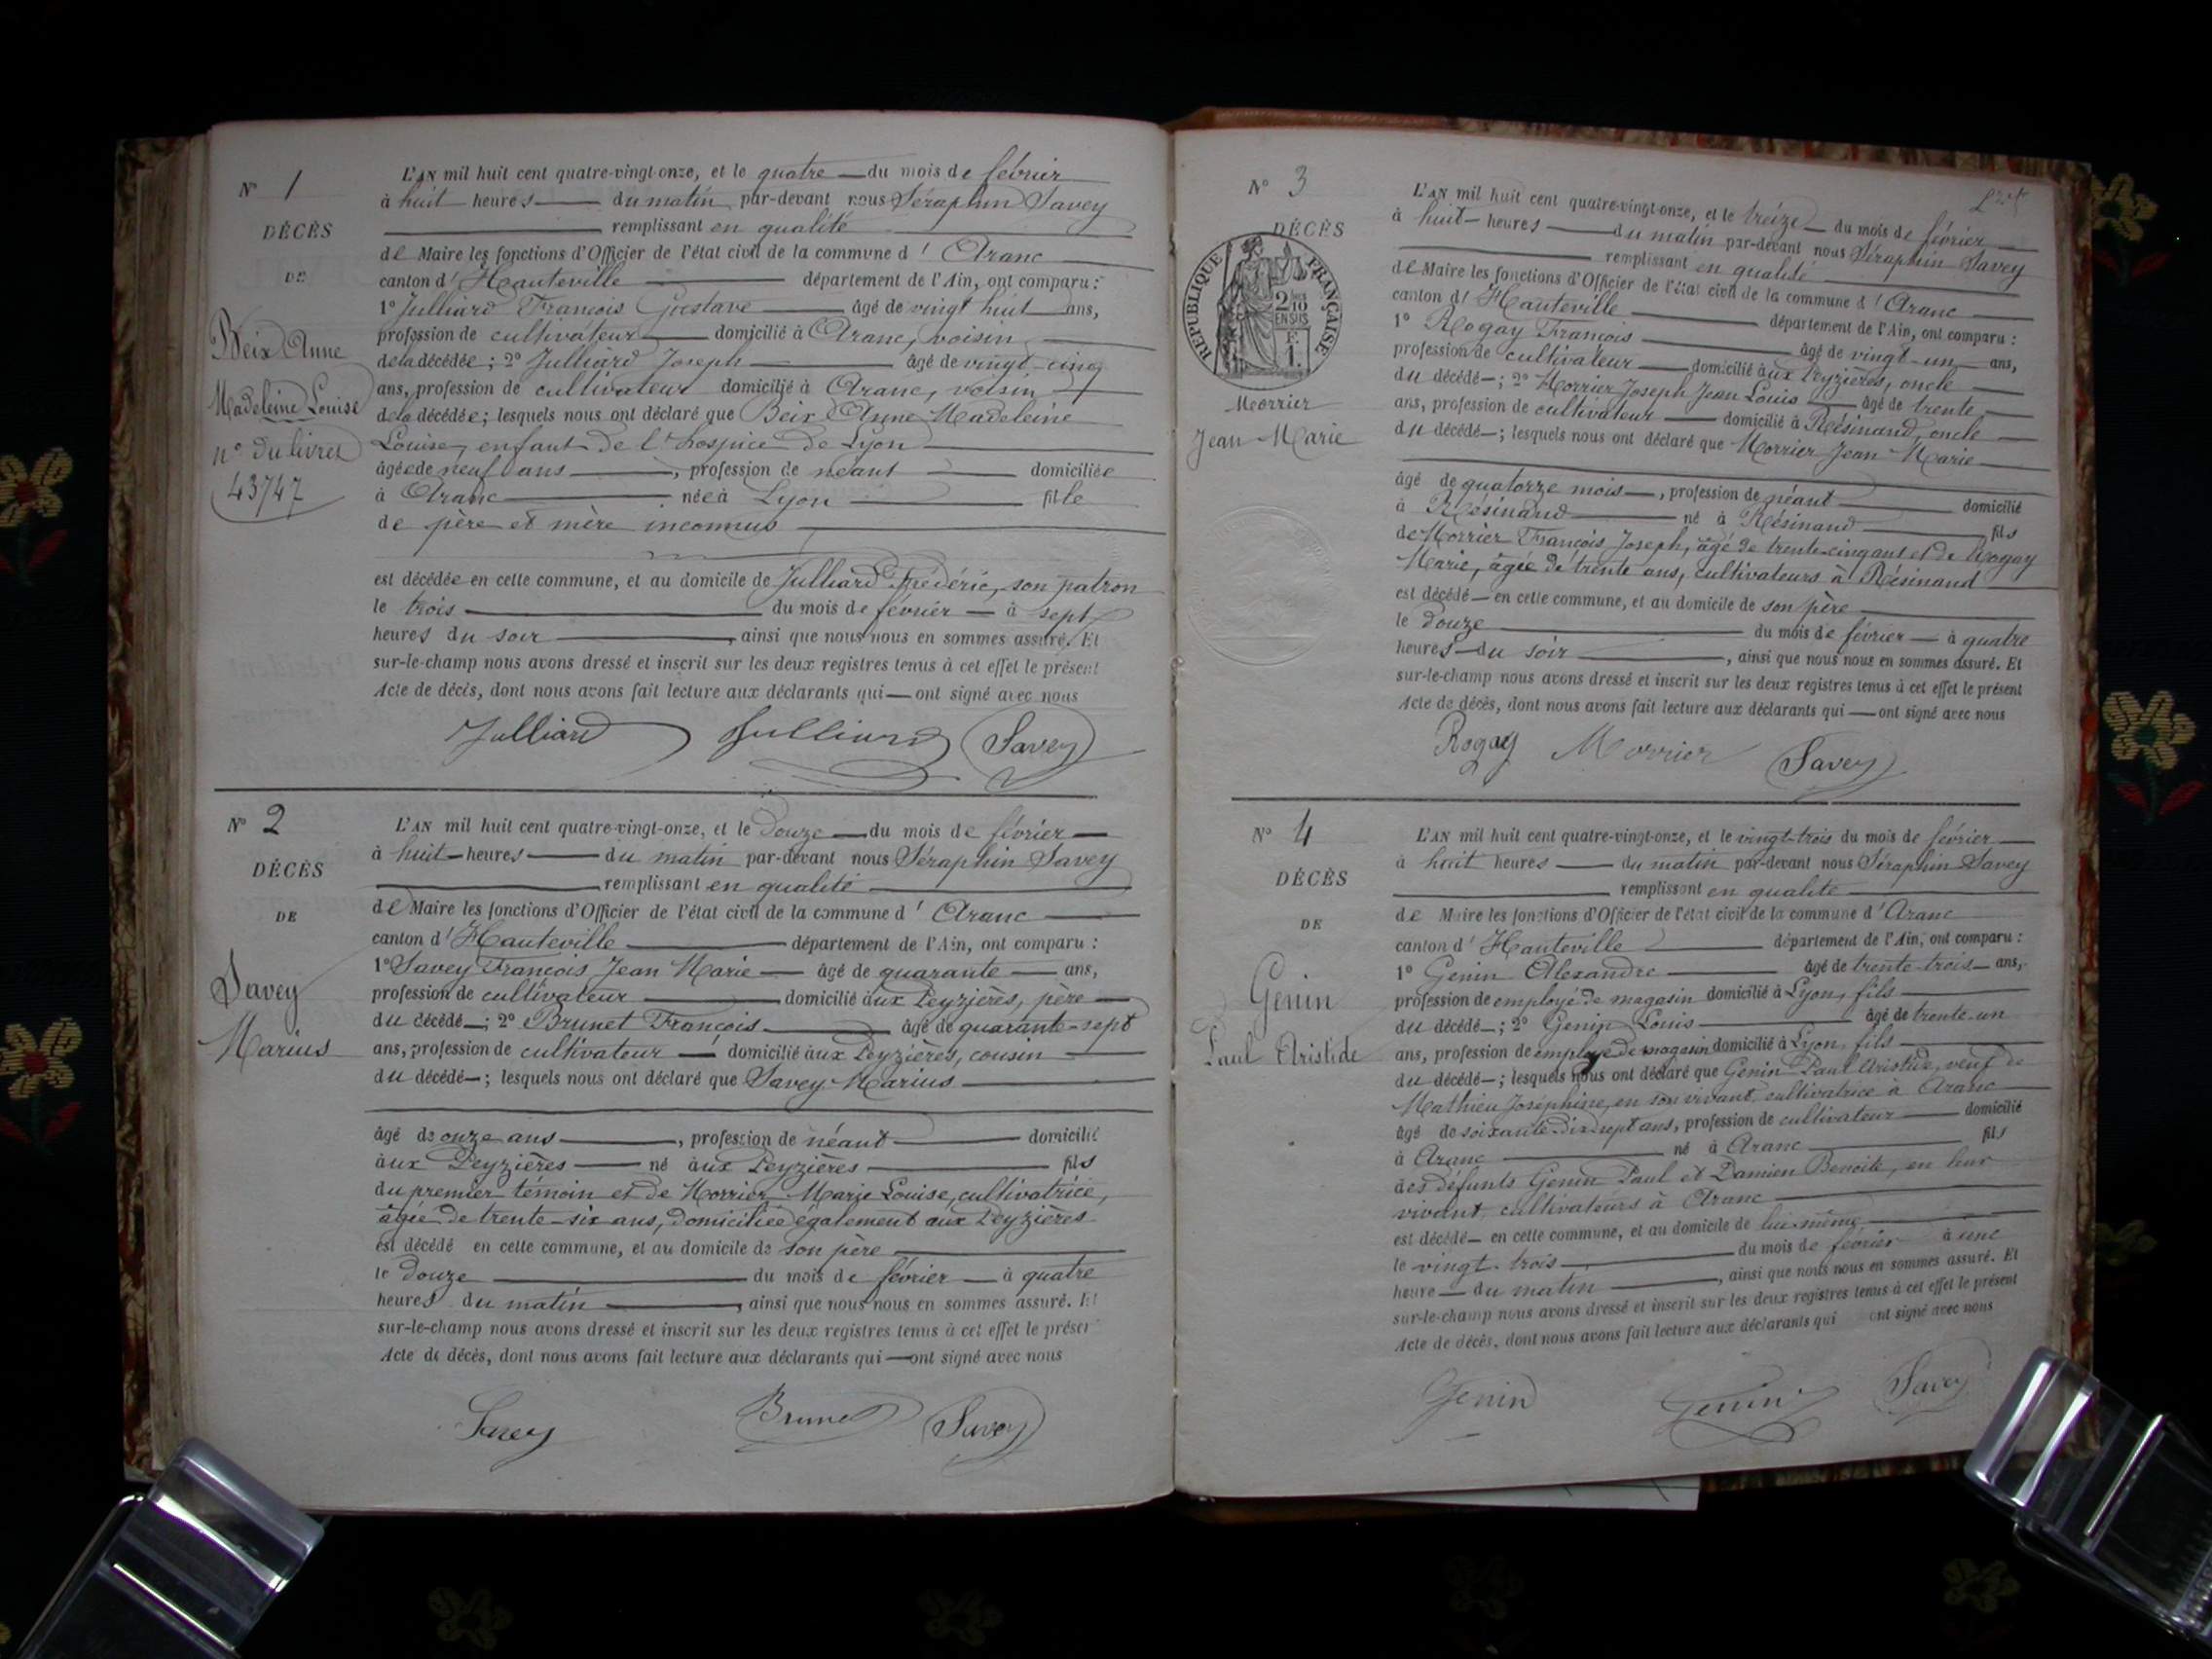 N° 1
DÉCÈS
DE
Beix Anne
Madeleine Louise
n° du livret
43747
L'AN mil huit cent quatre-vingt-onze, et le quatre du mois de février
à huit heures du matin par-devant nous Séraphin Savey
remplissant en qualité
de Maire les fonctions d'Officier de l'état civil de la commune d'Aranc
canton d'Hauteville département de l'Ain, ont comparu :
1° Julliard François Gustave âgé de vingt huit ans,
profession de cultivateur domicilié à Aranc, voisin
de la décédée ; 2° Julliard Joseph âgé de vingt-cinq
ans, profession de cultivateur domicilié à Aranc, voisin
de la décédée ; lesquels nous ont déclaré que Beix Anne Madeleine
Louise, enfant de l'hospice de Lyon
âgée de neuf ans, profession de néant domiciliée
à Aranc née à Lyon fille
de père et mère inconnus
est décédée en cette commune, et au domicile de Julliard Frédéric, son patron
le trois du mois de février à sept
heures du soir, ainsi que nous nous en sommes assuré. Et
sur-le-champ nous avons dressé et inscrit sur les deux registres tenus à cet effet le présent
Acte de décès, dont nous avons fait lecture aux déclarants qui ont signé avec nous
Julliard Julliard Savey
N° 2
DÉCÈS
DE
Savey
Marius
L'AN mil huit cent quatre-vingt-onze, et le douze du mois de février
à huit heures du matin par-devant nous Séraphin Savey
remplissant en qualité
de Maire les fonctions d'Officier de l'état civil de la commune d'Aranc
canton d'Hauteville département de l'Ain, ont comparu :
1° Savey François Jean Marie âgé de quarante ans,
profession de cultivateur domicilié aux Peyzières, père
du décédé ; 2° Brunet François âgé de quarante-sept
ans, profession de cultivateur domicilié aux Peyzières, cousin
du décédé ; lesquels nous ont déclaré que Savey Marius
âgé de onze ans, profession de néant domicilié
aux Peyzières né aux Peyzières fils
du premier témoin et de Morrier Marie Louise, cultivatrice,
âgée de trente-six ans, domiciliée également aux Peyzières
est décédé en cette commune, et au domicile de son père
le douze du mois de février à quatre
heures du matin, ainsi que nous nous en sommes assuré. Et
sur-le-champ nous avons dressé et inscrit sur les deux registres tenus à cet effet le présent
Acte de décès, dont nous avons fait lecture aux déclarants qui ont signé avec nous
Savey Brunet Savey
N° 3
DÉCÈS
RÉPUBLIQUE FRANÇAISE
2/10 EN SUS
F. 1.
Morrier
Jean Marie
L'AN mil huit cent quatre-vingt-onze, et le treize du mois de février
à huit heures du matin par-devant nous Séraphin Savey
remplissant en qualité
de Maire les fonctions d'Officier de l'état civil de la commune d'Aranc
canton d'Hauteville département de l'Ain, ont comparu :
1° Rogay François âgé de vingt-un ans,
profession de cultivateur domicilié aux Peyzières, oncle
du décédé ; 2° Morrier Joseph Jean Louis âgé de trente
ans, profession de cultivateur domicilié à Résinand, oncle
du décédé ; lesquels nous ont déclaré que Morrier Jean Marie
âgé de quatorze mois, profession de néant domicilié
à Résinand né à Résinand fils
de Morrier François Joseph, âgé de trente-cinq ans et de Rogay
Marie, âgée de trente ans, cultivateurs à Résinand
est décédé en cette commune, et au domicile de son père
le douze du mois de février à quatre
heures du soir, ainsi que nous nous en sommes assuré. Et
sur-le-champ nous avons dressé et inscrit sur les deux registres tenus à cet effet le présent
Acte de décès, dont nous avons fait lecture aux déclarants qui ont signé avec nous
Rogay Morrier Savey
N° 4
DÉCÈS
DE
Genin
Paul Aristide
L'AN mil huit cent quatre-vingt-onze, et le vingt-trois du mois de février
à huit heures du matin par-devant nous Séraphin Savey
remplissant en qualité
de Maire les fonctions d'Officier de l'état civil de la commune d'Aranc
canton d'Hauteville département de l'Ain, ont comparu :
1° Genin Alexandre âgé de trente-trois ans,
profession de employé de magasin domicilié à Lyon, fils
du décédé ; 2° Genin Louis âgé de trente-un
ans, profession de employé de magasin domicilié à Lyon, fils
du décédé ; lesquels nous ont déclaré que Genin Paul Aristide, veuf de
Mathieu Joséphine, en son vivant, cultivatrice à Aranc
âgé de soixante-dix-sept ans, profession de cultivateur domicilié
à Aranc né à Aranc fils
des défunts Genin Paul et Damien Benoite, en leur
vivant, cultivateurs à Aranc
est décédé en cette commune, et au domicile de lui-même
le vingt-trois du mois de février à une
heure du matin, ainsi que nous nous en sommes assuré. Et
sur-le-champ nous avons dressé et inscrit sur les deux registres tenus à cet effet le présent
Acte de décès, dont nous avons fait lecture aux déclarants qui ont signé avec nous
Genin Genin Savey